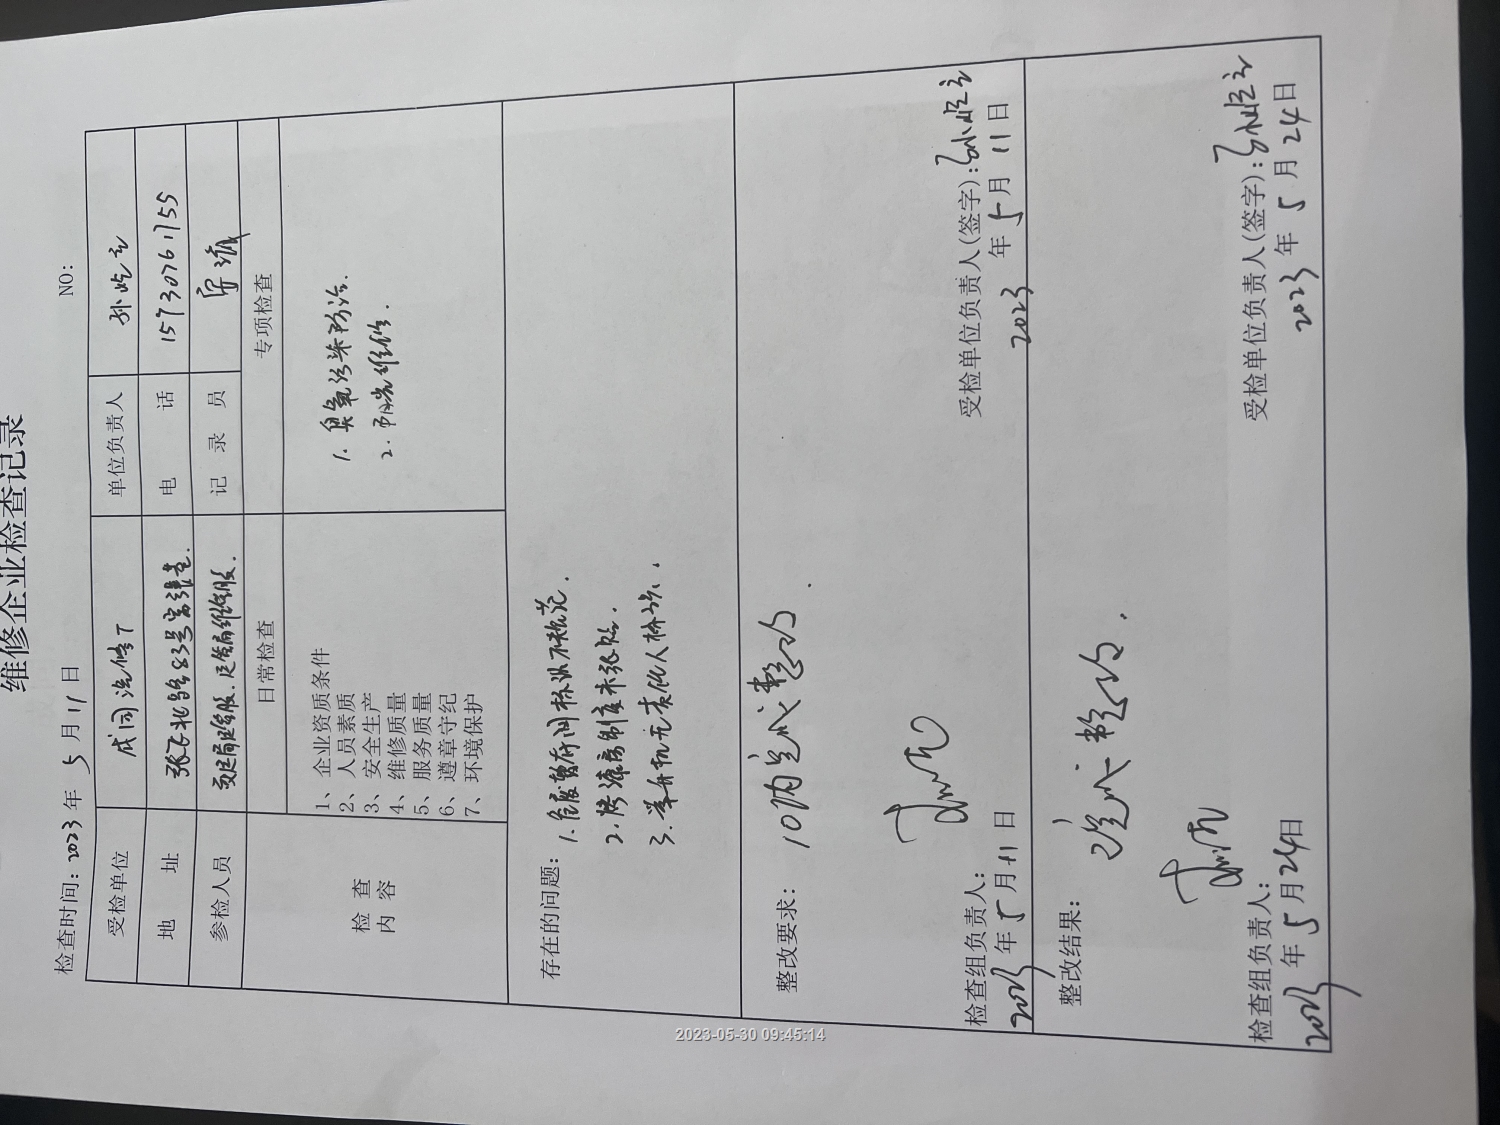 维修企业检查记录
检查时间：2023年 5月11日 NO:
受检单位 成同汽修厂 单位负责人 孙屹立
地 址 张飞北路83号 电 话 15730761755
参检人员 记 录 员
日常检查 专项检查
检 查
内 容
1、企业资质条件
2、人员素质
3、安全生产
4、维修质量
5、服务质量
6、遵章守纪
7、环境保护
1. 臭氧污染防治.
2. 阳光维修.
存在的问题：
1. 危废暂存间标识不规范.
2. 烤漆房制度未张贴.
3. 举升机无责任人标识.
整改要求： 10日内完成整改.
检查组负责人：
2023年5月11日
受检单位负责人(签字)：孙屹立
2023年5月11日
整改结果： 已完成整改.
检查组负责人：
2023年5月24日
受检单位负责人(签字)：孙屹立
2023年5月24日
2023-05-30 09:45:14